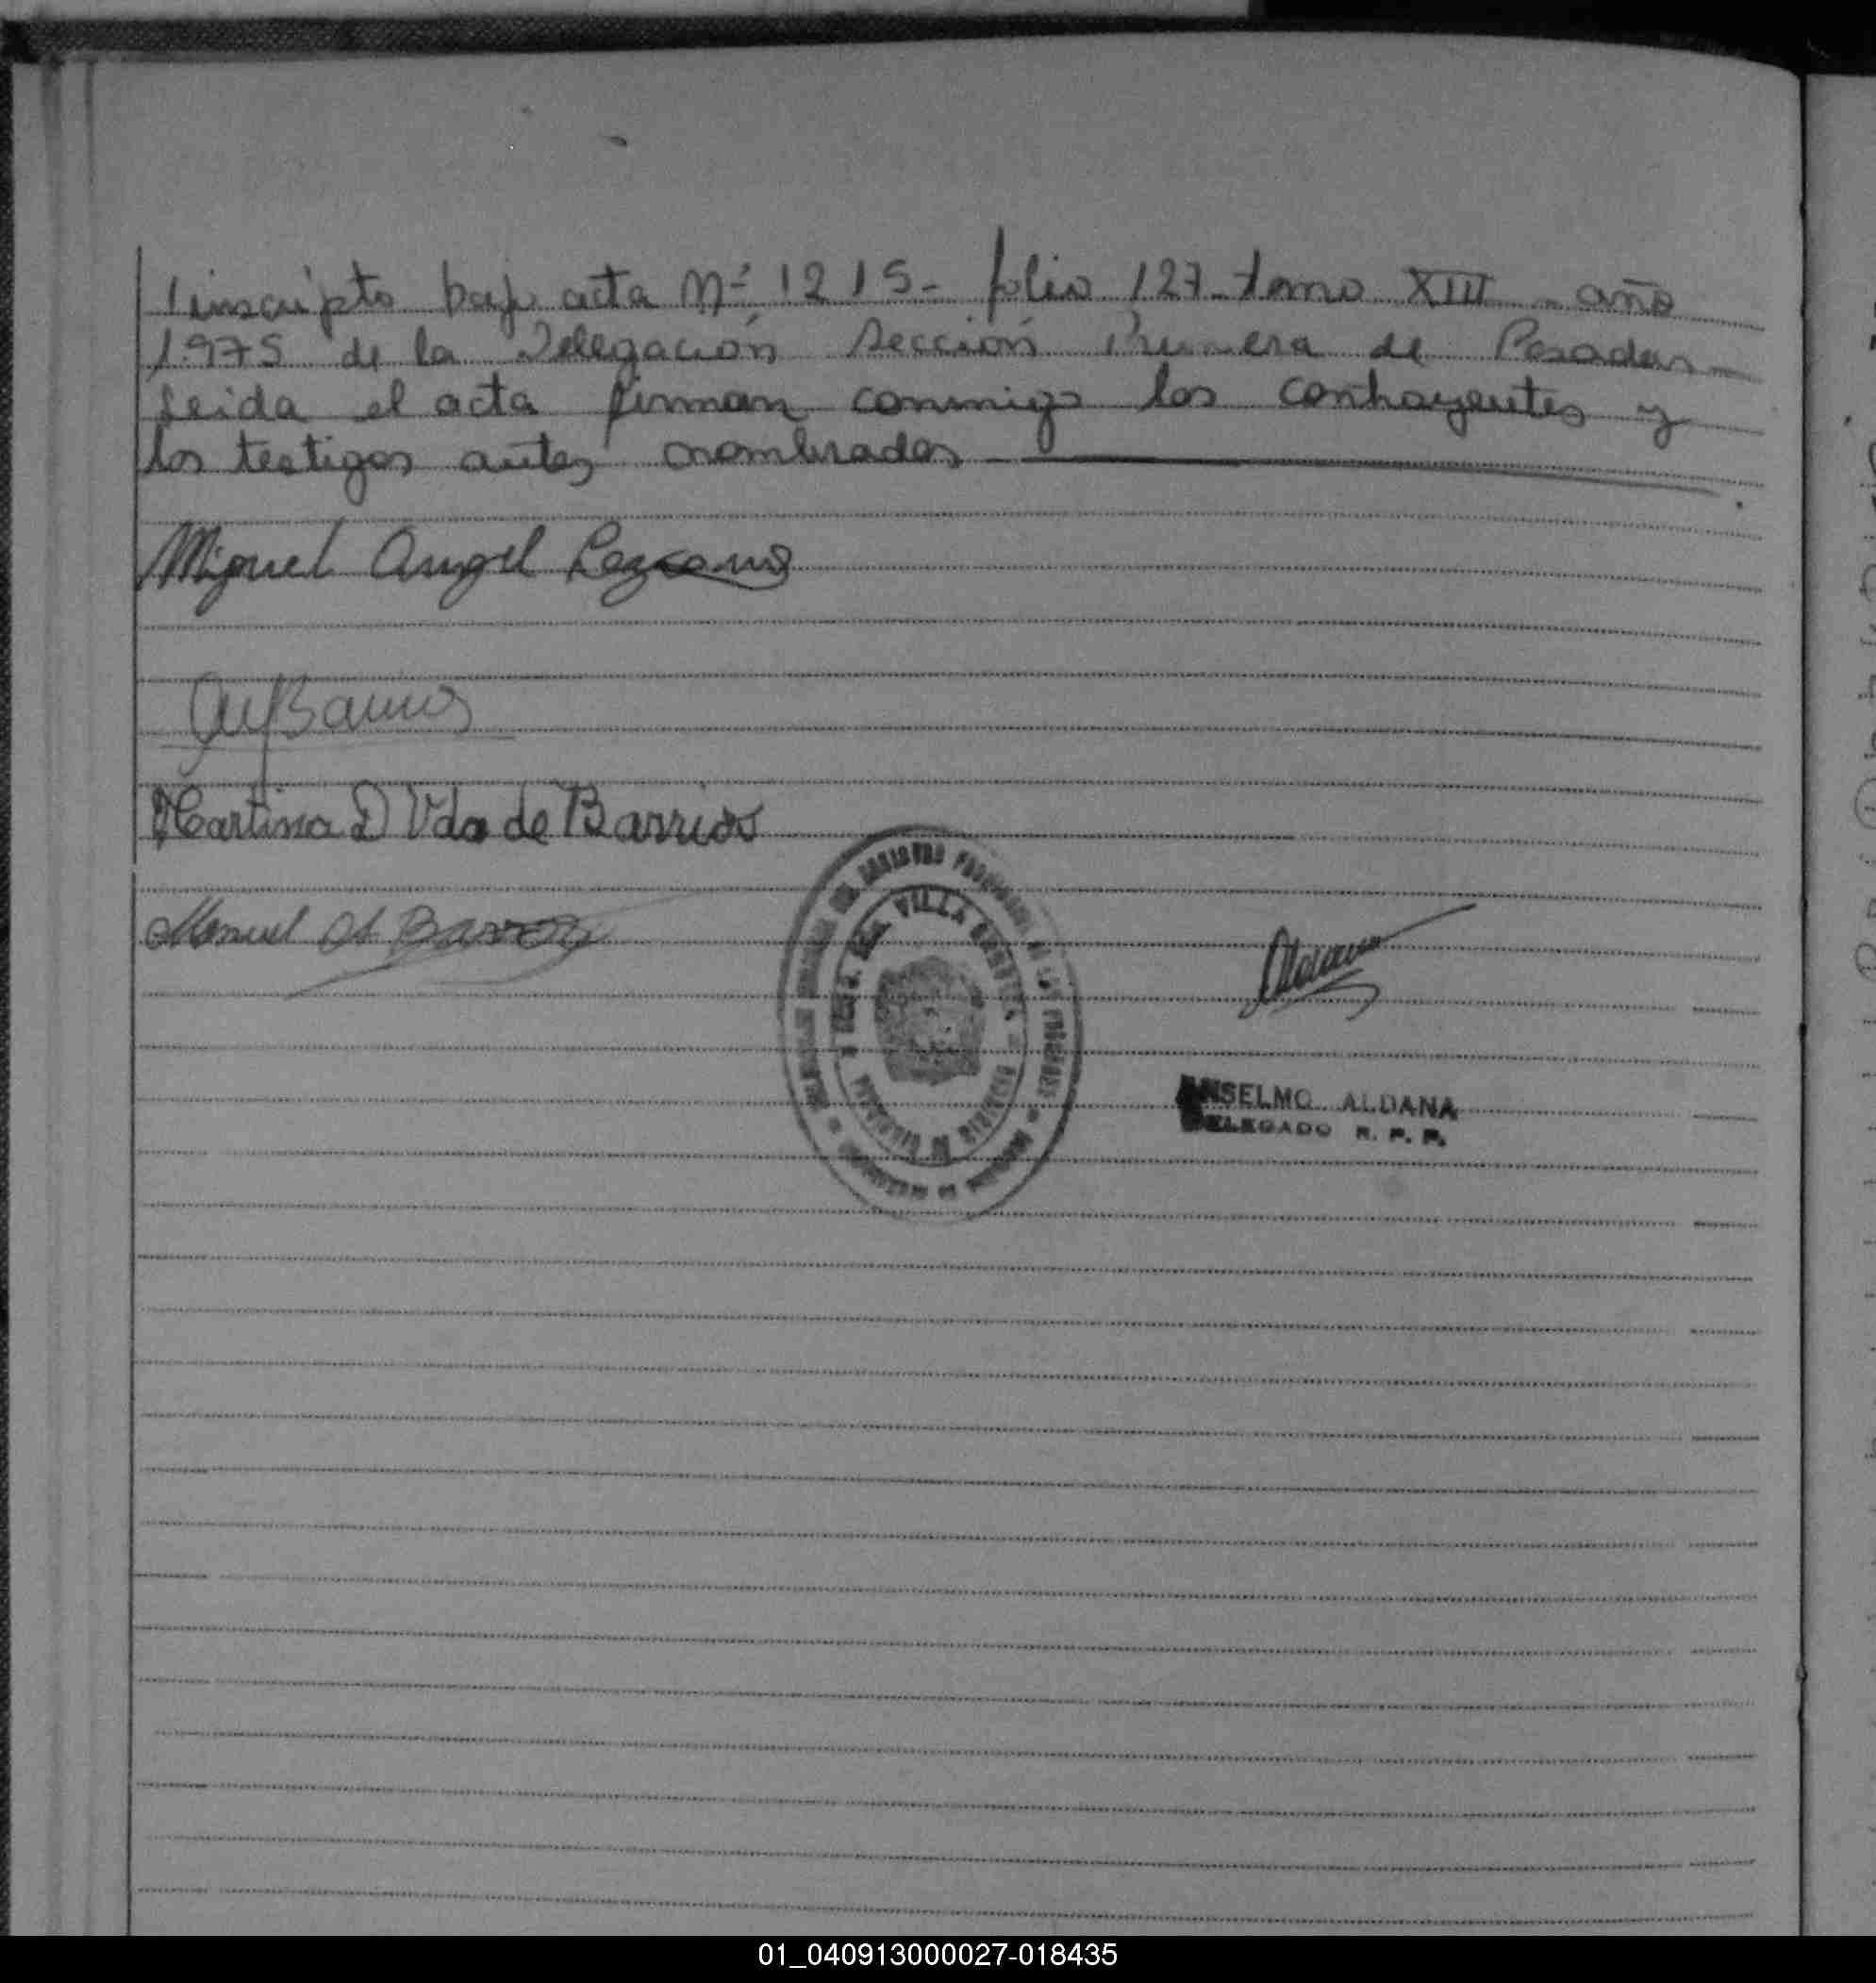 inscripto bajo acta Nº 1215- folio 127- tomo XIII - año
1975 de la Delegación Sección Primera de Posadas
Leida el acta firman conmigo los contrayentes y
los testigos antes nombrados
Miguel Angel Lezcano
Barrios
Martina D Vda de Barrios
Manuel A. Barrios
VILLA
ANSELMO ALDANA
DELEGADO R. P. P.
01_040913000027-018435